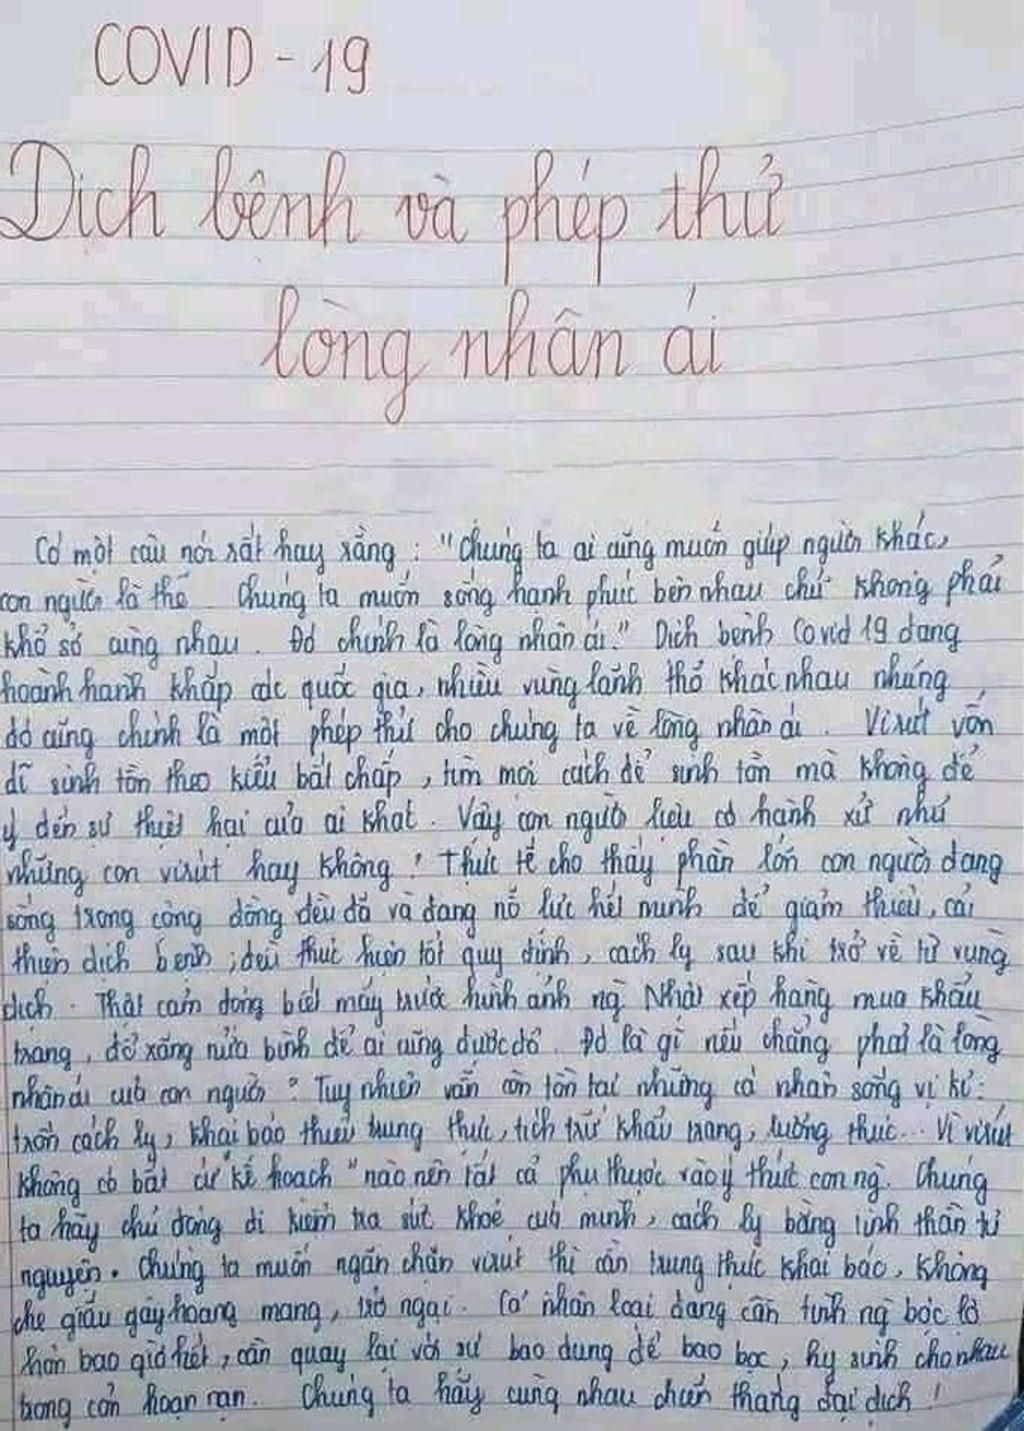 COVID - 19
Dịch bệnh và phép thử
lòng nhân ái
Có một câu nói rất hay rằng : "Chúng ta ai cũng muốn giúp người khác,
con người là thế. Chúng ta muốn sống hạnh phúc bên nhau chứ không phải
khổ sở cùng nhau. Đó chính là lòng nhân ái." Dịch bệnh Covid 19 đang
hoành hành khắp các quốc gia, nhiều vùng lãnh thổ khác nhau nhưng
đó cũng chính là một phép thử cho chúng ta về lòng nhân ái. Virút vốn
dĩ sinh tồn theo kiểu bất chấp, tìm mọi cách để sinh tồn mà không để
ý đến sự thiệt hại của ai khác. Vậy con người liệu có hành xử như
những con virút hay không? Thực tế cho thấy phần lớn con người đang
sống trong cộng đồng đều đã và đang nỗ lực hết mình để giảm thiểu, cải
thiện dịch bệnh; đều thực hiện tốt quy định, cách ly sau khi trở về từ vùng
dịch. Thật cảm động biết mấy trước hình ảnh ng Nhật xếp hàng mua khẩu
trang, đổ xăng nửa bình để ai cũng được đổ. Đó là gì nếu chẳng phải là lòng
nhân ái của con người? Tuy nhiên vẫn còn tồn tại những cá nhân sống vị kỉ:
trốn cách ly, khai báo thiếu trung thực, tích trữ khẩu trang, lương thực... Vì virút
không có bất cứ "kế hoạch" nào nên tất cả phụ thuộc vào ý thức con ng. Chúng
ta hãy chủ động đi kiểm tra sức khoẻ của mình, cách ly bằng tinh thần tự
nguyện. Chúng ta muốn ngăn chặn virút thì cần trung thực khai báo, không
che giấu gây hoang mang, trở ngại. Cả nhân loại đang cần tình ng bộc lộ
hơn bao giờ hết, cần quay lại với sự bao dung để bao bọc, hy sinh cho nhau
trong cơn hoạn nạn. Chúng ta hãy cùng nhau chiến thắng đại dịch!